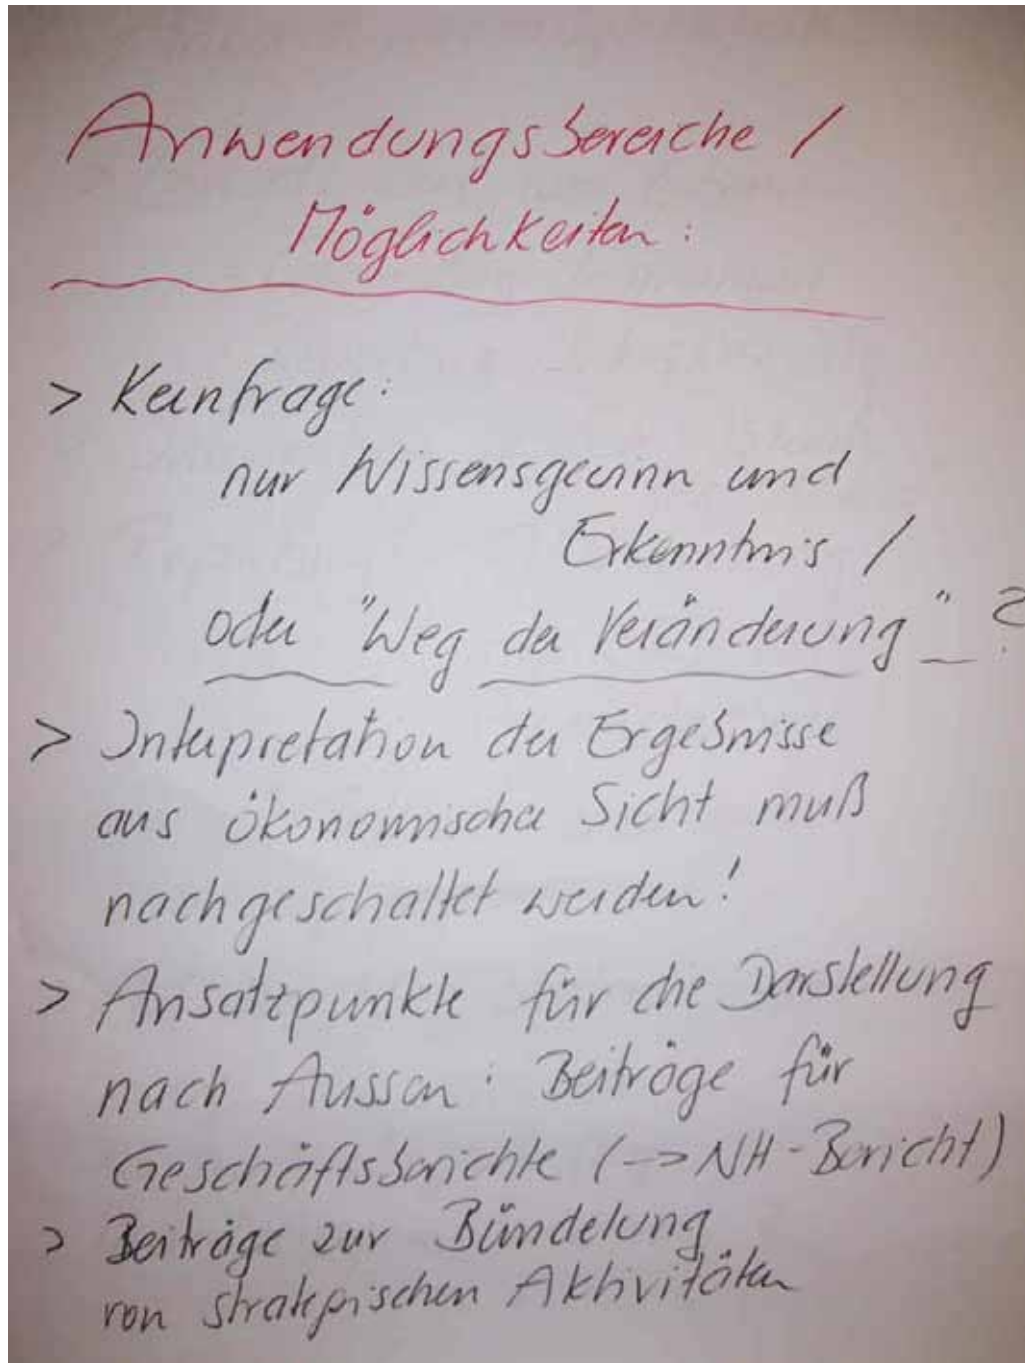 Anwendungsbereiche /
Möglichkeiten:
> Kernfrage:
nur Wissensgewinn und
Erkenntnis /
oder "Weg der Veränderung" ?
> Interpretation der Ergebnisse
aus ökonomischer Sicht muß
nachgeschaltet werden!
> Ansatzpunkte für die Darstellung
nach Aussen: Beiträge für
Geschäftsberichte (-> NH-Bericht)
> Beiträge zur Bündelung
von strategischen Aktivitäten